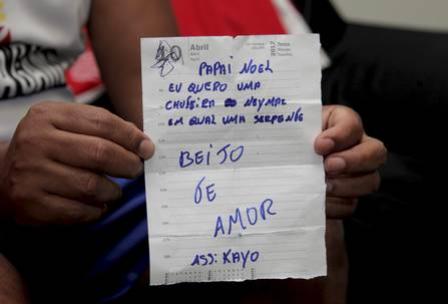 Abril
2017
PAPAI NOEL
EU QUERO UMA
CHUTEIRA DO NEYMAR
EM QUAL UMA SERPENTE
BEIJO
DE
AMOR
ASS: KAYO